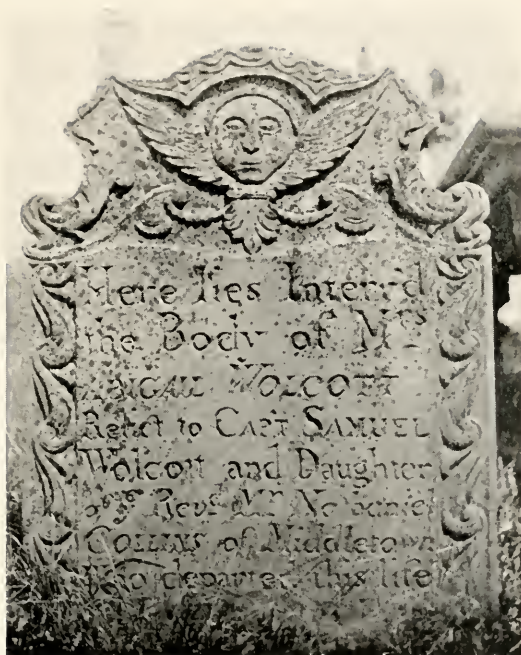 Here lies Interr'd
the Body of Mrs
ABIGALL WOLCOTT
Relict to CAPT SAMUEL
Wolcott and Daughter
of ye Revd Mr Nathaniel
COLLINS of Middletown
Who departed this life